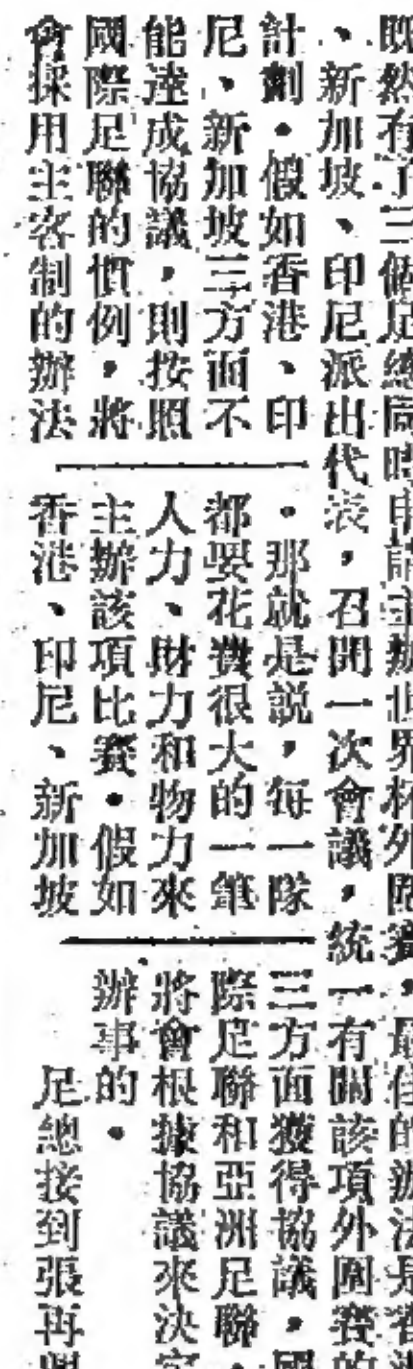 既然有了三個足總同時申請主辦世界杯外圍賽，最佳的辦法是香港
、新加坡、印尼派出代表，召開一次會議，統一有關該項外圍賽的
計劃。假如香港、印
尼、新加坡三方面不
能達成協議，則按照
國際足聯的慣例，將
會採用主客制的辦法
。那就是説，每一隊
都要花費很大的一筆
人力、財力和物力來
主辦該項比賽。假如
香港、印尼、新加坡
三方面獲得協議，國
際足聯和亞洲足聯，
將會根據協議來決定
辦事的。
足總接到張再興